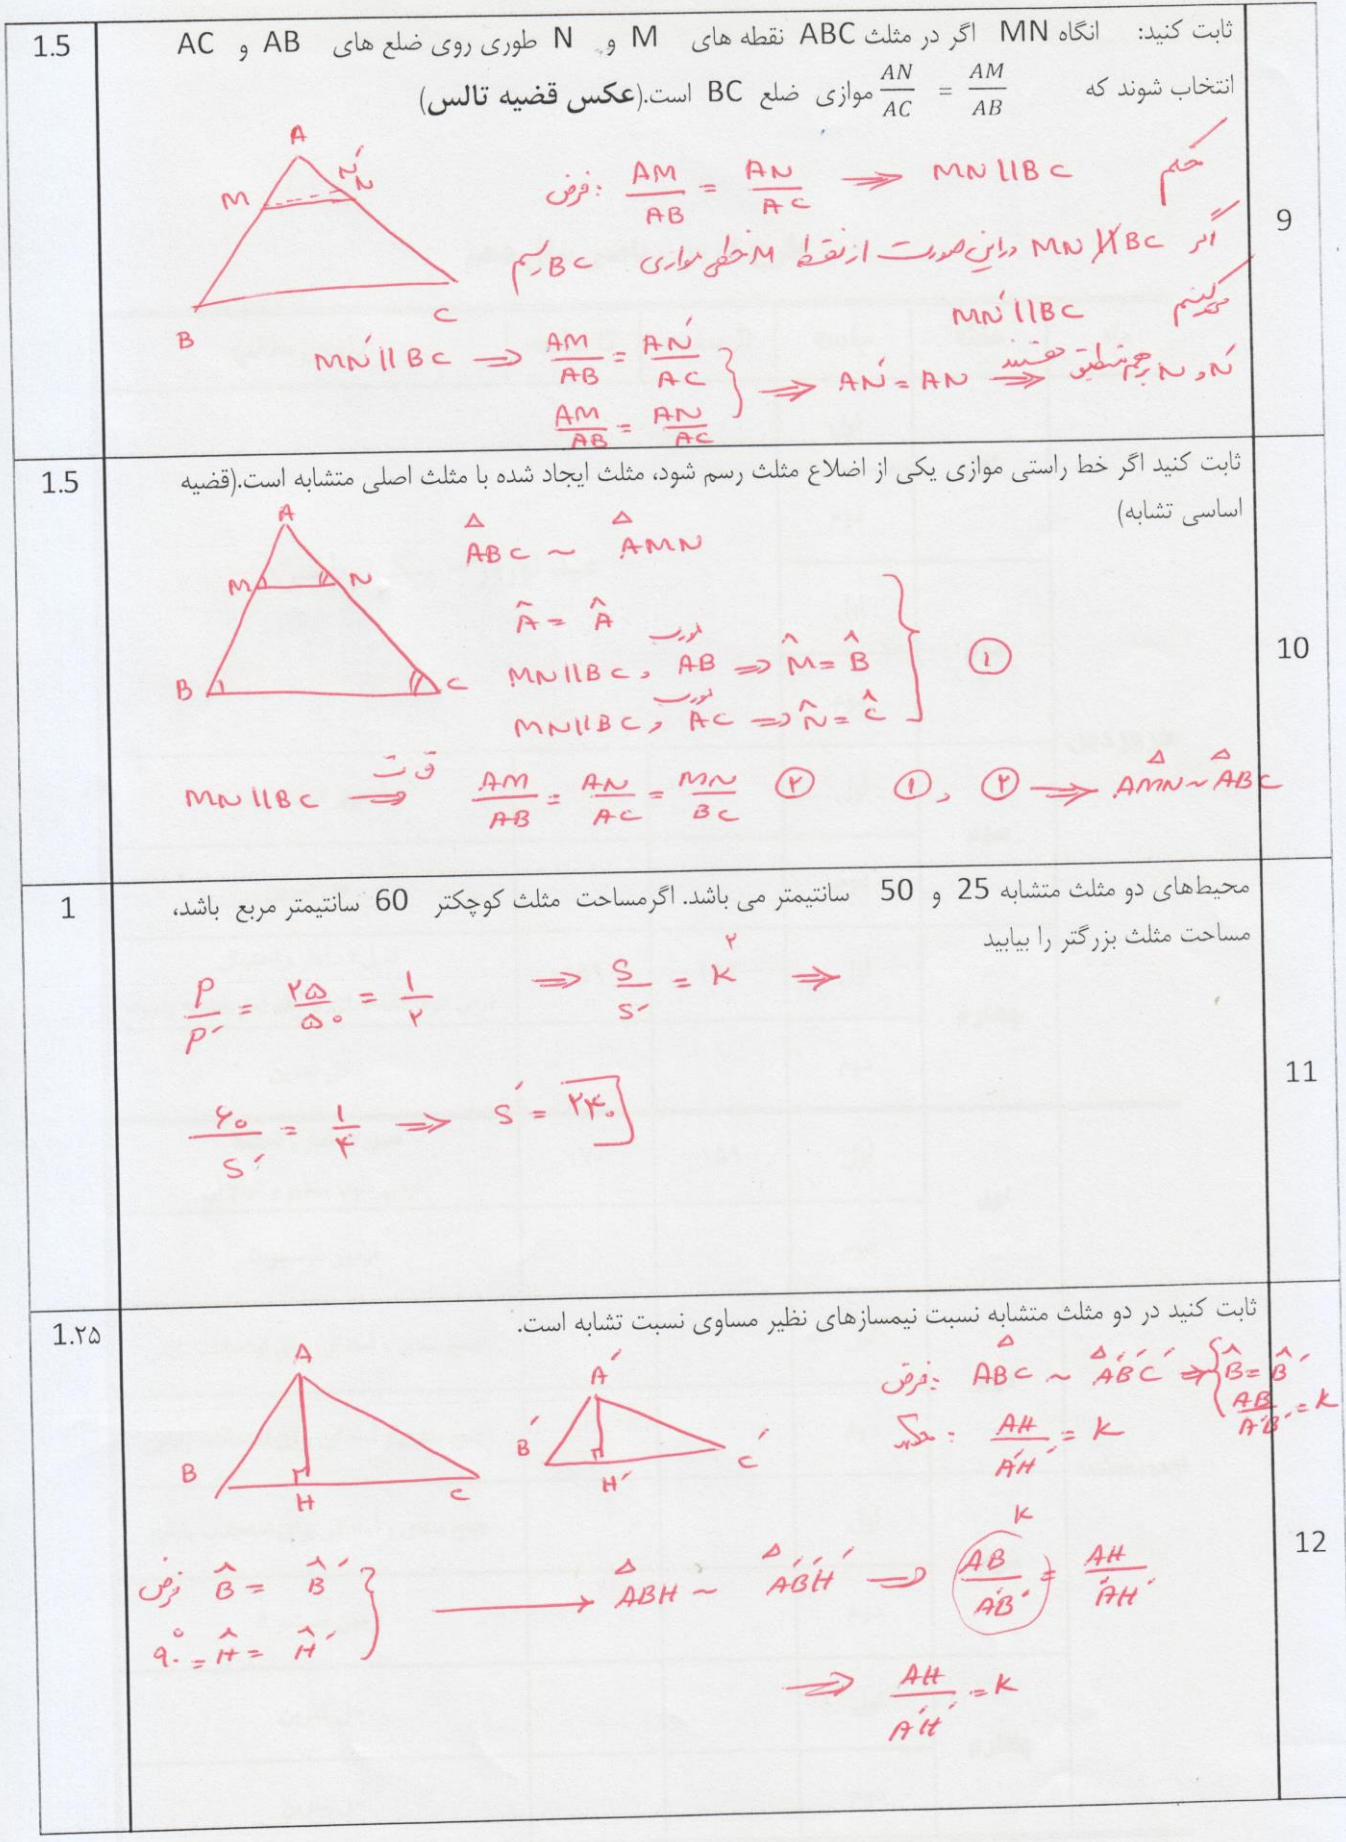 1.5
ثابت کنید: انگاه MN اگر در مثلث ABC نقطه های M و N طوری روی ضلع های AB و AC
انتخاب شوند که AM/AB = AN/AC موازی ضلع BC است.(عکس قضیه تالس)
9
A
N'
M N
B C
فرض: AM/AB = AN/AC ⇒ MN || BC حکم
اگر MN ∦ BC دراین صورت از نقطه M خطی موازی BC رسم
میکنیم MN' || BC
MN' || BC ⇒ AM/AB = AN'/AC
AM/AB = AN/AC } ⇒ AN' = AN ⇒ N و N' برهم منطبق هستند
1.5
ثابت کنید اگر خط راستی موازی یکی از اضلاع مثلث رسم شود، مثلث ایجاد شده با مثلث اصلی متشابه است.(قضیه
اساسی تشابه)
10
A
M N
B C
△ABC ~ △AMN
Â = Â
MN || BC , مورب AB ⇒ M̂ = B̂
MN || BC , مورب AC ⇒ N̂ = Ĉ } ①
MN || BC ⇒ ق ت AM/AB = AN/AC = MN/BC ② ① , ② ⇒ △AMN ~ △ABC
1
محیطهای دو مثلث متشابه 25 و 50 سانتیمتر می باشد. اگرمساحت مثلث کوچکتر 60 سانتیمتر مربع باشد،
مساحت مثلث بزرگتر را بیابید
11
P/P' = ۲۵/۵۰ = ۱/۲ ⇒ S/S' = K² ⇒
۶۰/S' = ۱/۴ ⇒ S' = ۲۴۰
1.۲۵
ثابت کنید در دو مثلث متشابه نسبت نیمسازهای نظیر مساوی نسبت تشابه است.
12
A
B H C
A'
B' H' C'
فرض: △ABC ~ △A'B'C' ⇒ { B̂ = B̂'
AB/A'B' = K
حکم: AH/A'H' = K
فرض B̂ = B̂'
۹۰° = Ĥ = Ĥ' } → △ABH ~ △A'B'H' ⇒ K AB/A'B' = AH/A'H'
⇒ AH/A'H' = K